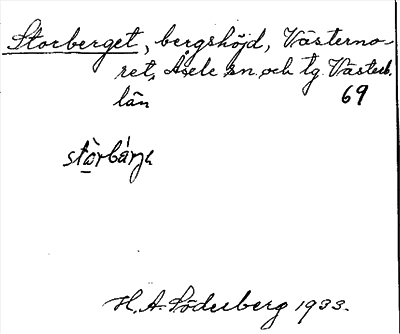 Storberget, bergshöjd, Västerno-
ret, Åsele sn. och tg. Västerb.
län 69
H. A. Söderberg 1933.